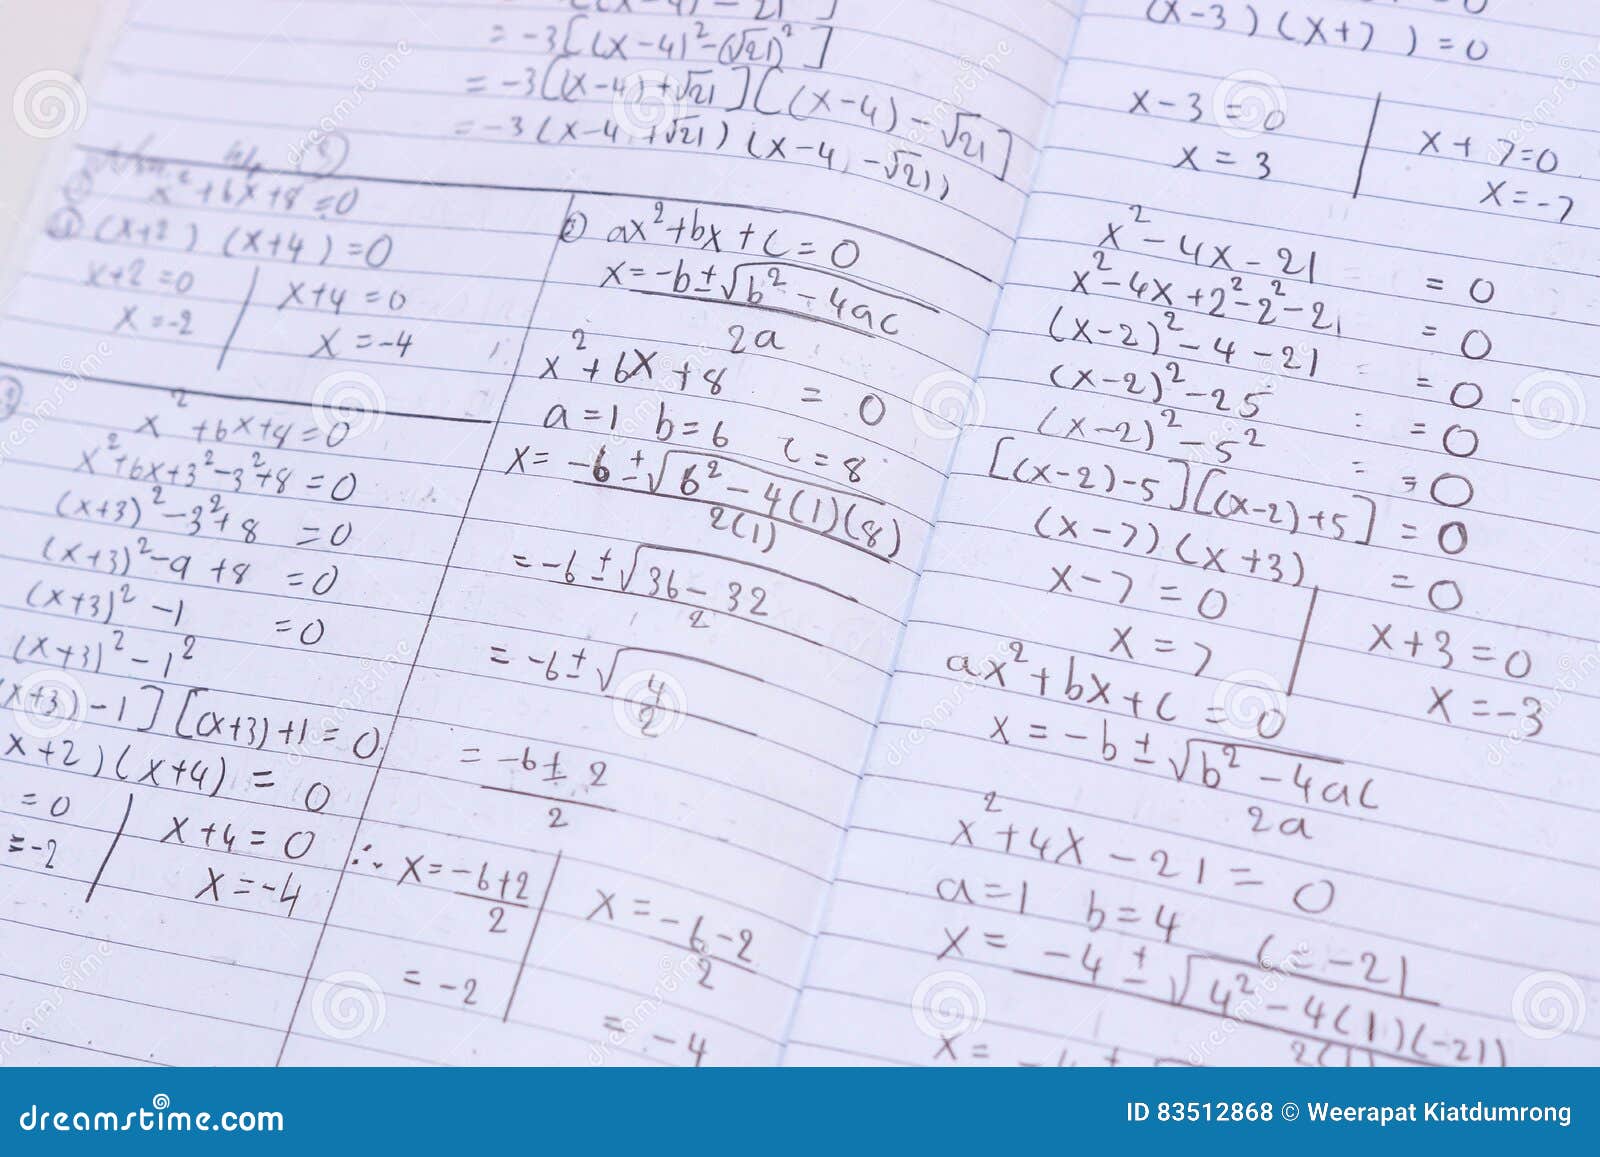 = -3[(x-4)²-(√21)²]
= -3[(x-4)+√21][(x-4)-√21]
= -3(x-4+√21)(x-4-√21)
x²+6x+8=0
① (x+2)(x+4)=0
x+2=0 | x+4=0
x=-2 | x=-4
x²+6x+8=0
x²+6x+3²-3²+8=0
(x+3)²-3²+8=0
(x+3)²-9+8=0
(x+3)²-1=0
(x+3)²-1²
x+3)-1][(x+3)+1=0
x+2)(x+4)=0
=0 | x+4=0
=-2 | x=-4
② ax²+bx+c=0
x=-b±√b²-4ac
2a
x²+6x+8=0
a=1 b=6 c=8
x=-6±√6²-4(1)(8)
2(1)
=-6±√36-32
2
=-6±√4
2
=-6±2
2
∴ x=-6+2 | x=-6-2
2 | 2
=-2 | =-4
(x-3)(x+7)=0
x-3=0 | x+7=0
x=3 | x=-7
x²-4x-21=0
x²-4x+2²-2²-21=0
(x-2)²-4-21=0
(x-2)²-25=0
(x-2)²-5²=0
[(x-2)-5][(x-2)+5]=0
(x-7)(x+3)=0
x-7=0 | x+3=0
x=7 | x=-3
ax²+bx+c=0
x=-b±√b²-4ac
2a
x²+4x-21=0
a=1 b=4 c=-21
x=-4±√4²-4(1)(-21)
2(1)
x=
dreamstime.com
ID 83512868 © Weerapat Kiatdumrong